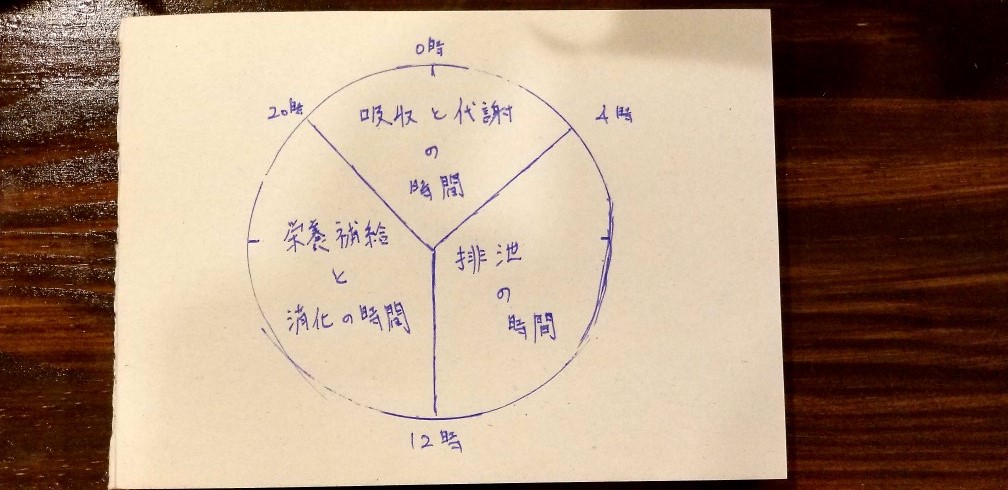 0時
20時
4時
吸収と代謝
の
時間
栄養補給
と
消化の時間
排泄
の
時間
12時